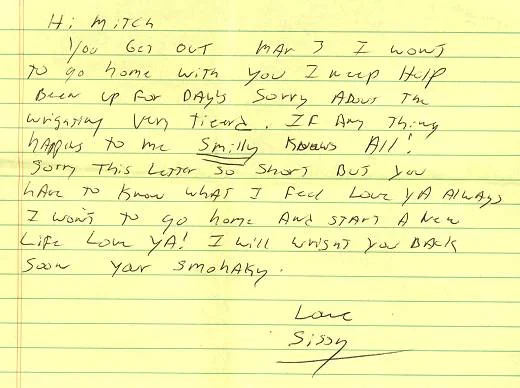 Hi Mitch
You Get out Mar 3 I won't
to go home with you I neep Help
Been up for Days Sorry About the
wrighting Very tieerd. If Any Thing
happins to me Smilly Knows All!
Sorry This Letter so Short But you
have to know what I Feel Love YA Always
I won't to go home And start A New
Life Love YA! I will wright you Back
soon your smohaky.
Love
Sissy